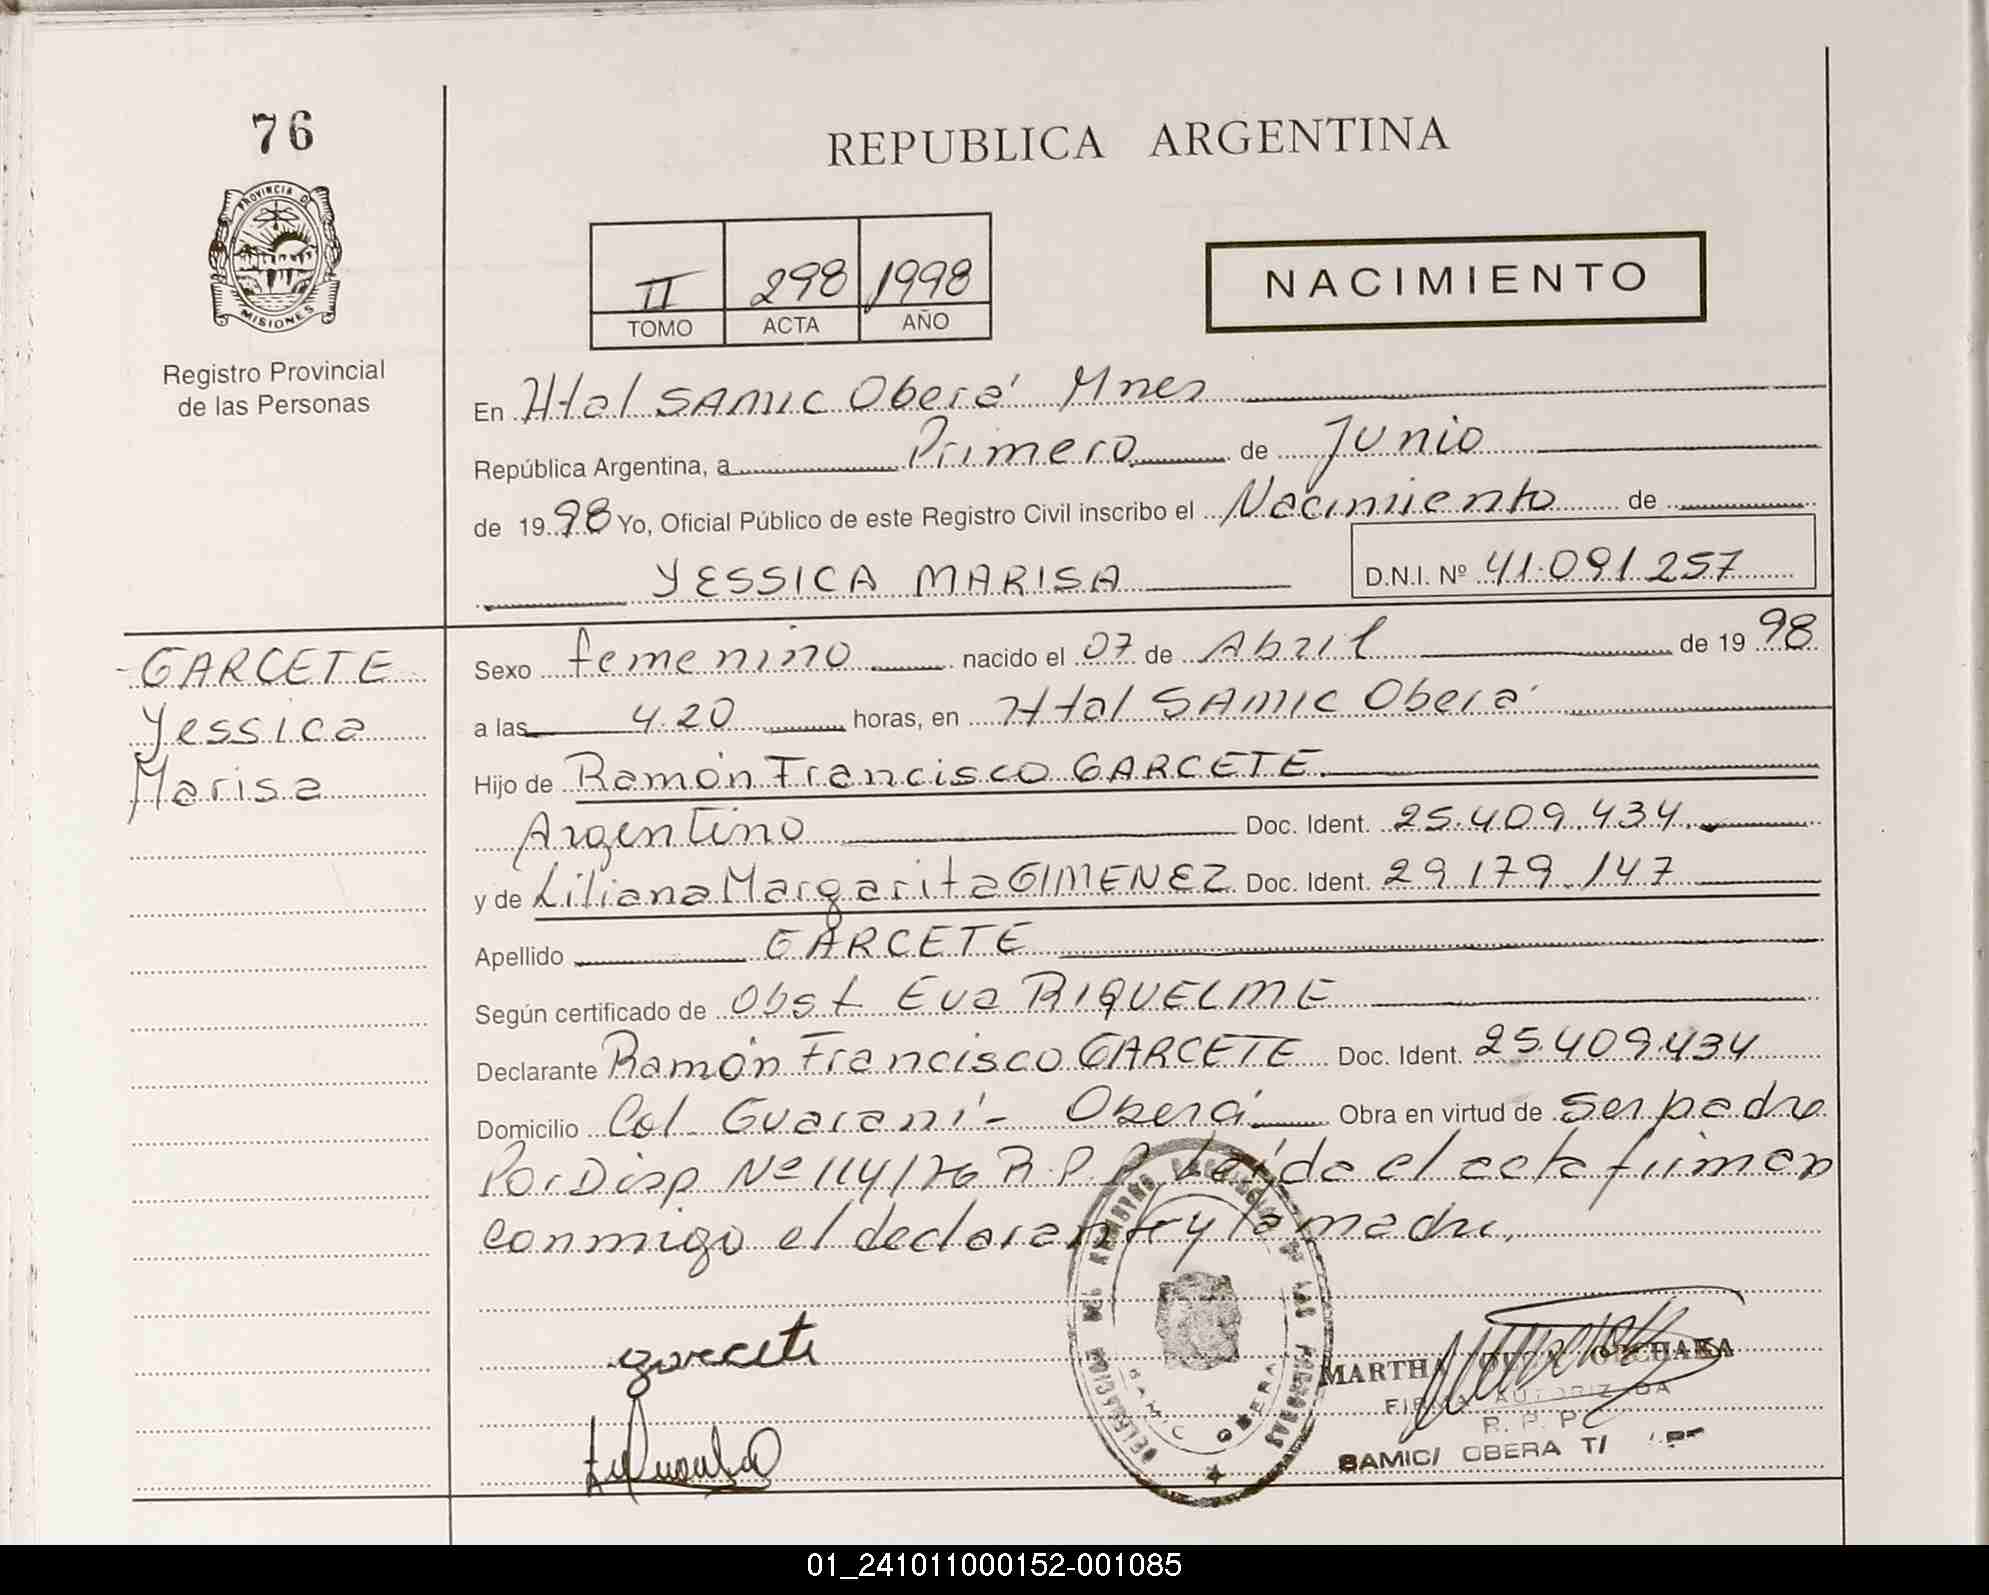 76
REPUBLICA ARGENTINA
PROVINCIA D
MISIONES
Registro Provincial
de las Personas
II 298 1998
TOMO ACTA AÑO
NACIMIENTO
En Htal SAMIC Oberá Mnes
República Argentina, a Primero de Junio
de 1998 Yo, Oficial Público de este Registro Civil inscribo el Nacimiento de
YESSICA MARISA D.N.I. Nº 41.091.257
GARCETE
Yessica
Marisa
Sexo femenino nacido el 07 de Abril de 1998
a las 4.20 horas, en Htal SAMIC Oberá
Hijo de Ramón Francisco GARCETE
Argentino Doc. Ident. 25.409.434
y de Liliana Margarita GIMENEZ Doc. Ident. 29.179.147
Apellido GARCETE
Según certificado de Obst Eva RIQUELME
Declarante Ramón Francisco GARCETE Doc. Ident. 25.409.434
Domicilio Col. Guaraní - Oberá Obra en virtud de ser padre
Por Disp Nº 114/76 R.P.P. Leída el acta firman
conmigo el declarante y la madre.
garcete
DELEGACION DEL REGISTRO PROVINCIAL DE LAS PERSONAS
SAMIC OBERA
MARTHA
FIRMA AUTORIZADA
R. P. P.
SAMIC/ OBERA
01_241011000152-001085